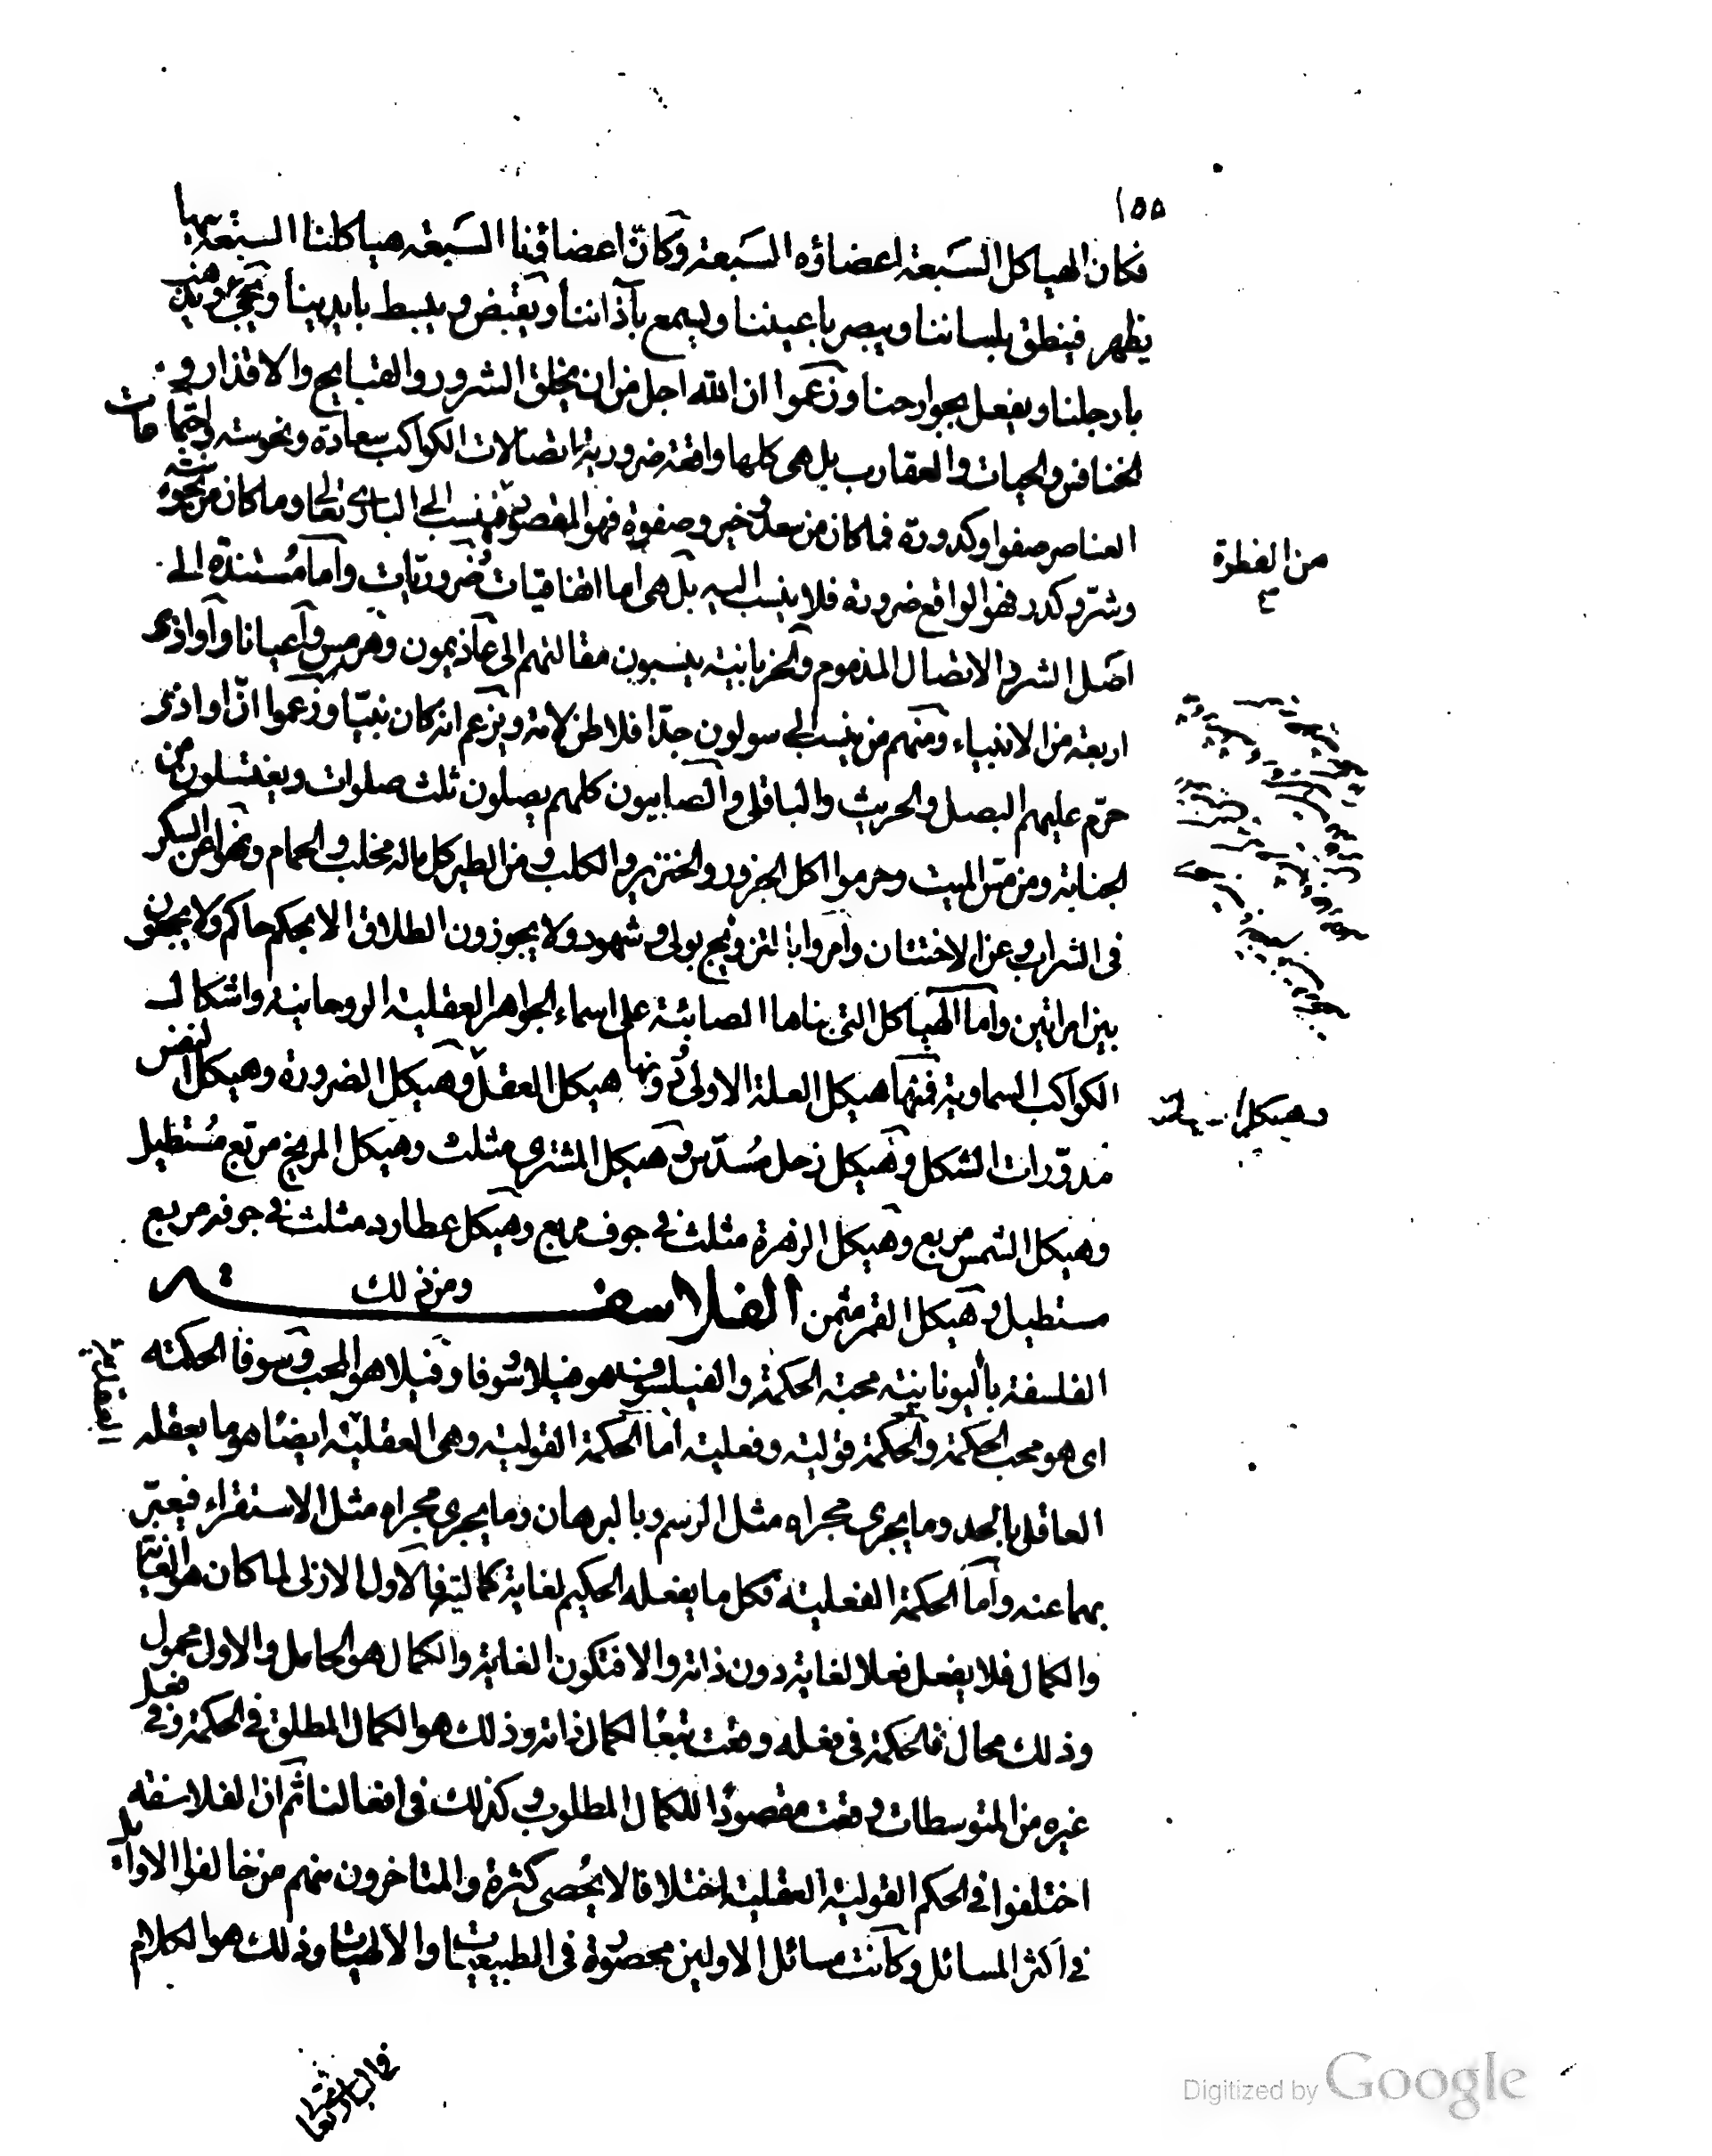 ١٥٥
فكان الهياكل السبعة اعضاؤه السبعة وكان اعضاؤنا السبعة هياكلنا السبعة بها
يظهر فينطق بلساننا ويبصر باعيننا ويسمع بآذاننا ويقبض ويبسط بايدينا ويجئ ويذهب
بارجلنا ويفعل بجوارحنا وزعموا ان الله اجل من ان يخلق الشرور والقبايح والاقذار و
الخنافس والحيات والعقارب بل هى كلها واقعة ضرورية اتصالات الكواكب سعادة ونحوسة واجتماعات
العناصر صفوا وكدورة فما كان من سعد وخير وصفوة فهو المقصود فينسب الى البارى تعالى وما كان من نحوسة
وشر وكدر فهو الواقع ضرورة فلا ينسب اليه بل هى اما اتفاقيات وضروريات واما مستندة الى
اصل الشرور الاتصال المذموم والحرنانية ينسبون مقالتهم الى عاذيمون وهرمس واعيانا واواذى
اربعة من الانبياء ومنهم من ينسب الى سولون جد افلاطن لامه ويزعم انه كان نبيا وزعموا ان اواذى
حرم عليهم البصل والحريث والباقلى والصابيون كلهم يصلون ثلث صلوات ويغتسلون من
الجنابة ومن مس الميت وحرموا اكل الجزور والخنزير والكلب ومن الطير كل ما له مخلب والحمام ونهوا عن السكر
فى الشراب وعن الاختتان وامروا بالتزويج بولى وشهود ولا يجوزون الطلاق الا بحكم حاكم ولا يجمعون
بين امراتين واما الهياكل التى بناها الصابئة على اسماء الجواهر العقلية الروحانية واشكال
الكواكب السماوية فمنها هيكل العلة الاولى ودونها هيكل العقل وهيكل الضرورة وهيكل النفس
مدورات الشكل وهيكل زحل مسدس وهيكل المشترى مثلث وهيكل المريخ مربع مستطيل
وهيكل الشمس مربع وهيكل الزهرة مثلث فى جوف مربع وهيكل عطارد مثلث فى جوفه مربع
مستطيل وهيكل القمر مثمن الفلاسفة ومن ذلك
الفلسفة باليونانية محبة الحكمة والفيلسوف هو فيلا سوفا وفيلا هو المحب وسوفا الحكمة
اى هو محب الحكمة والحكمة قولية وفعلية اما الحكمة القولية وهى العقلية ايضا هو ما يعقله
العاقل بالحد وما يجرى مجراه مثل الرسم وبالبرهان وما يجرى مجراه مثل الاستقراء فيعبر
بهما عنه واما الحكمة الفعلية فكل ما يفعله الحكيم لغاية كمالية فالاول الازلى لما كان هو الغاية
والكمال فلا يفعل فعلا لغاية دون ذاته والا فتكون الغاية والكمال هو الحامل والاول محمول
وذلك محال فالحكمة فى فعله وقعت تبعا لكمال ذاته وذلك هو الكمال المطلق فى الحكمة وفى فعل
غيره من المتوسطات وقعت مقصودا للكمال المطلوب وكذلك فى افعالنا ثم ان الفلاسفة
اختلفوا فى الحكم القولية العقلية اختلافا لا يحصى كثرة والمتاخرون منهم من خالفوا الاوائل
فى اكثر المسائل وكانت مسائل الاولين محصورة فى الطبيعيات والالهيات وذلك هو الكلام
من الفطرة
وهيكل
Digitized by Google